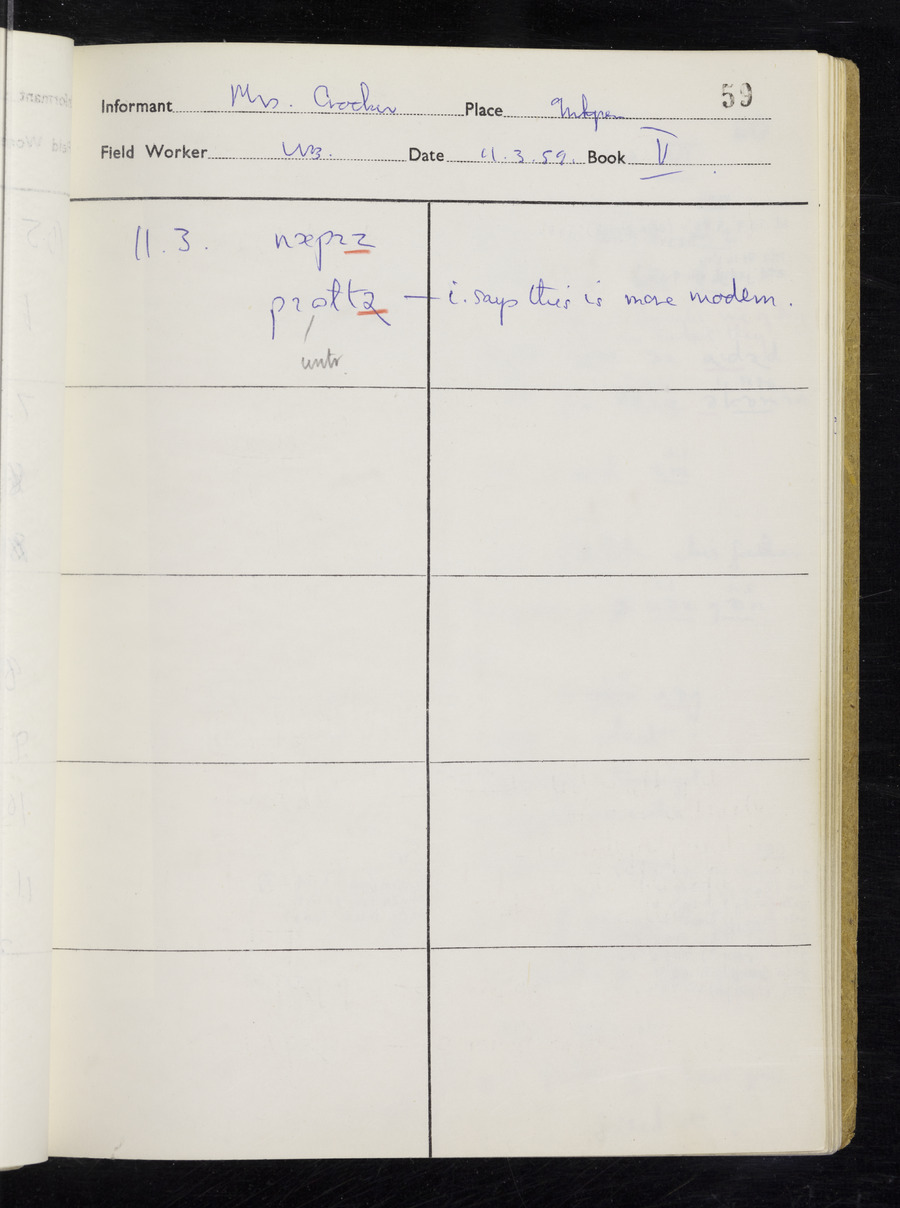 59
Informant Mrs. Crocker Place Inkpen
Field Worker WB. Date 11.3.59. Book V
11.3. næpɪz
— i. says this is more modern.
untr.